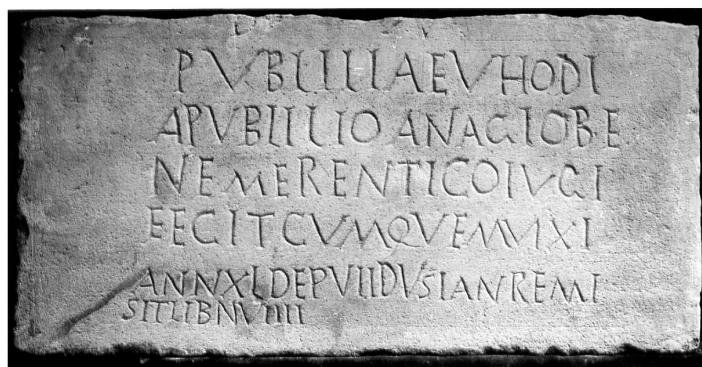 PVBLILIAEVHODI
APVBLILIO ANAGIOBE
NEMERENTICOIVGI
FECITCVMQVEMVIXI
ANNXLDEPVIIDVSIANREMI
SITLIBNVIIII